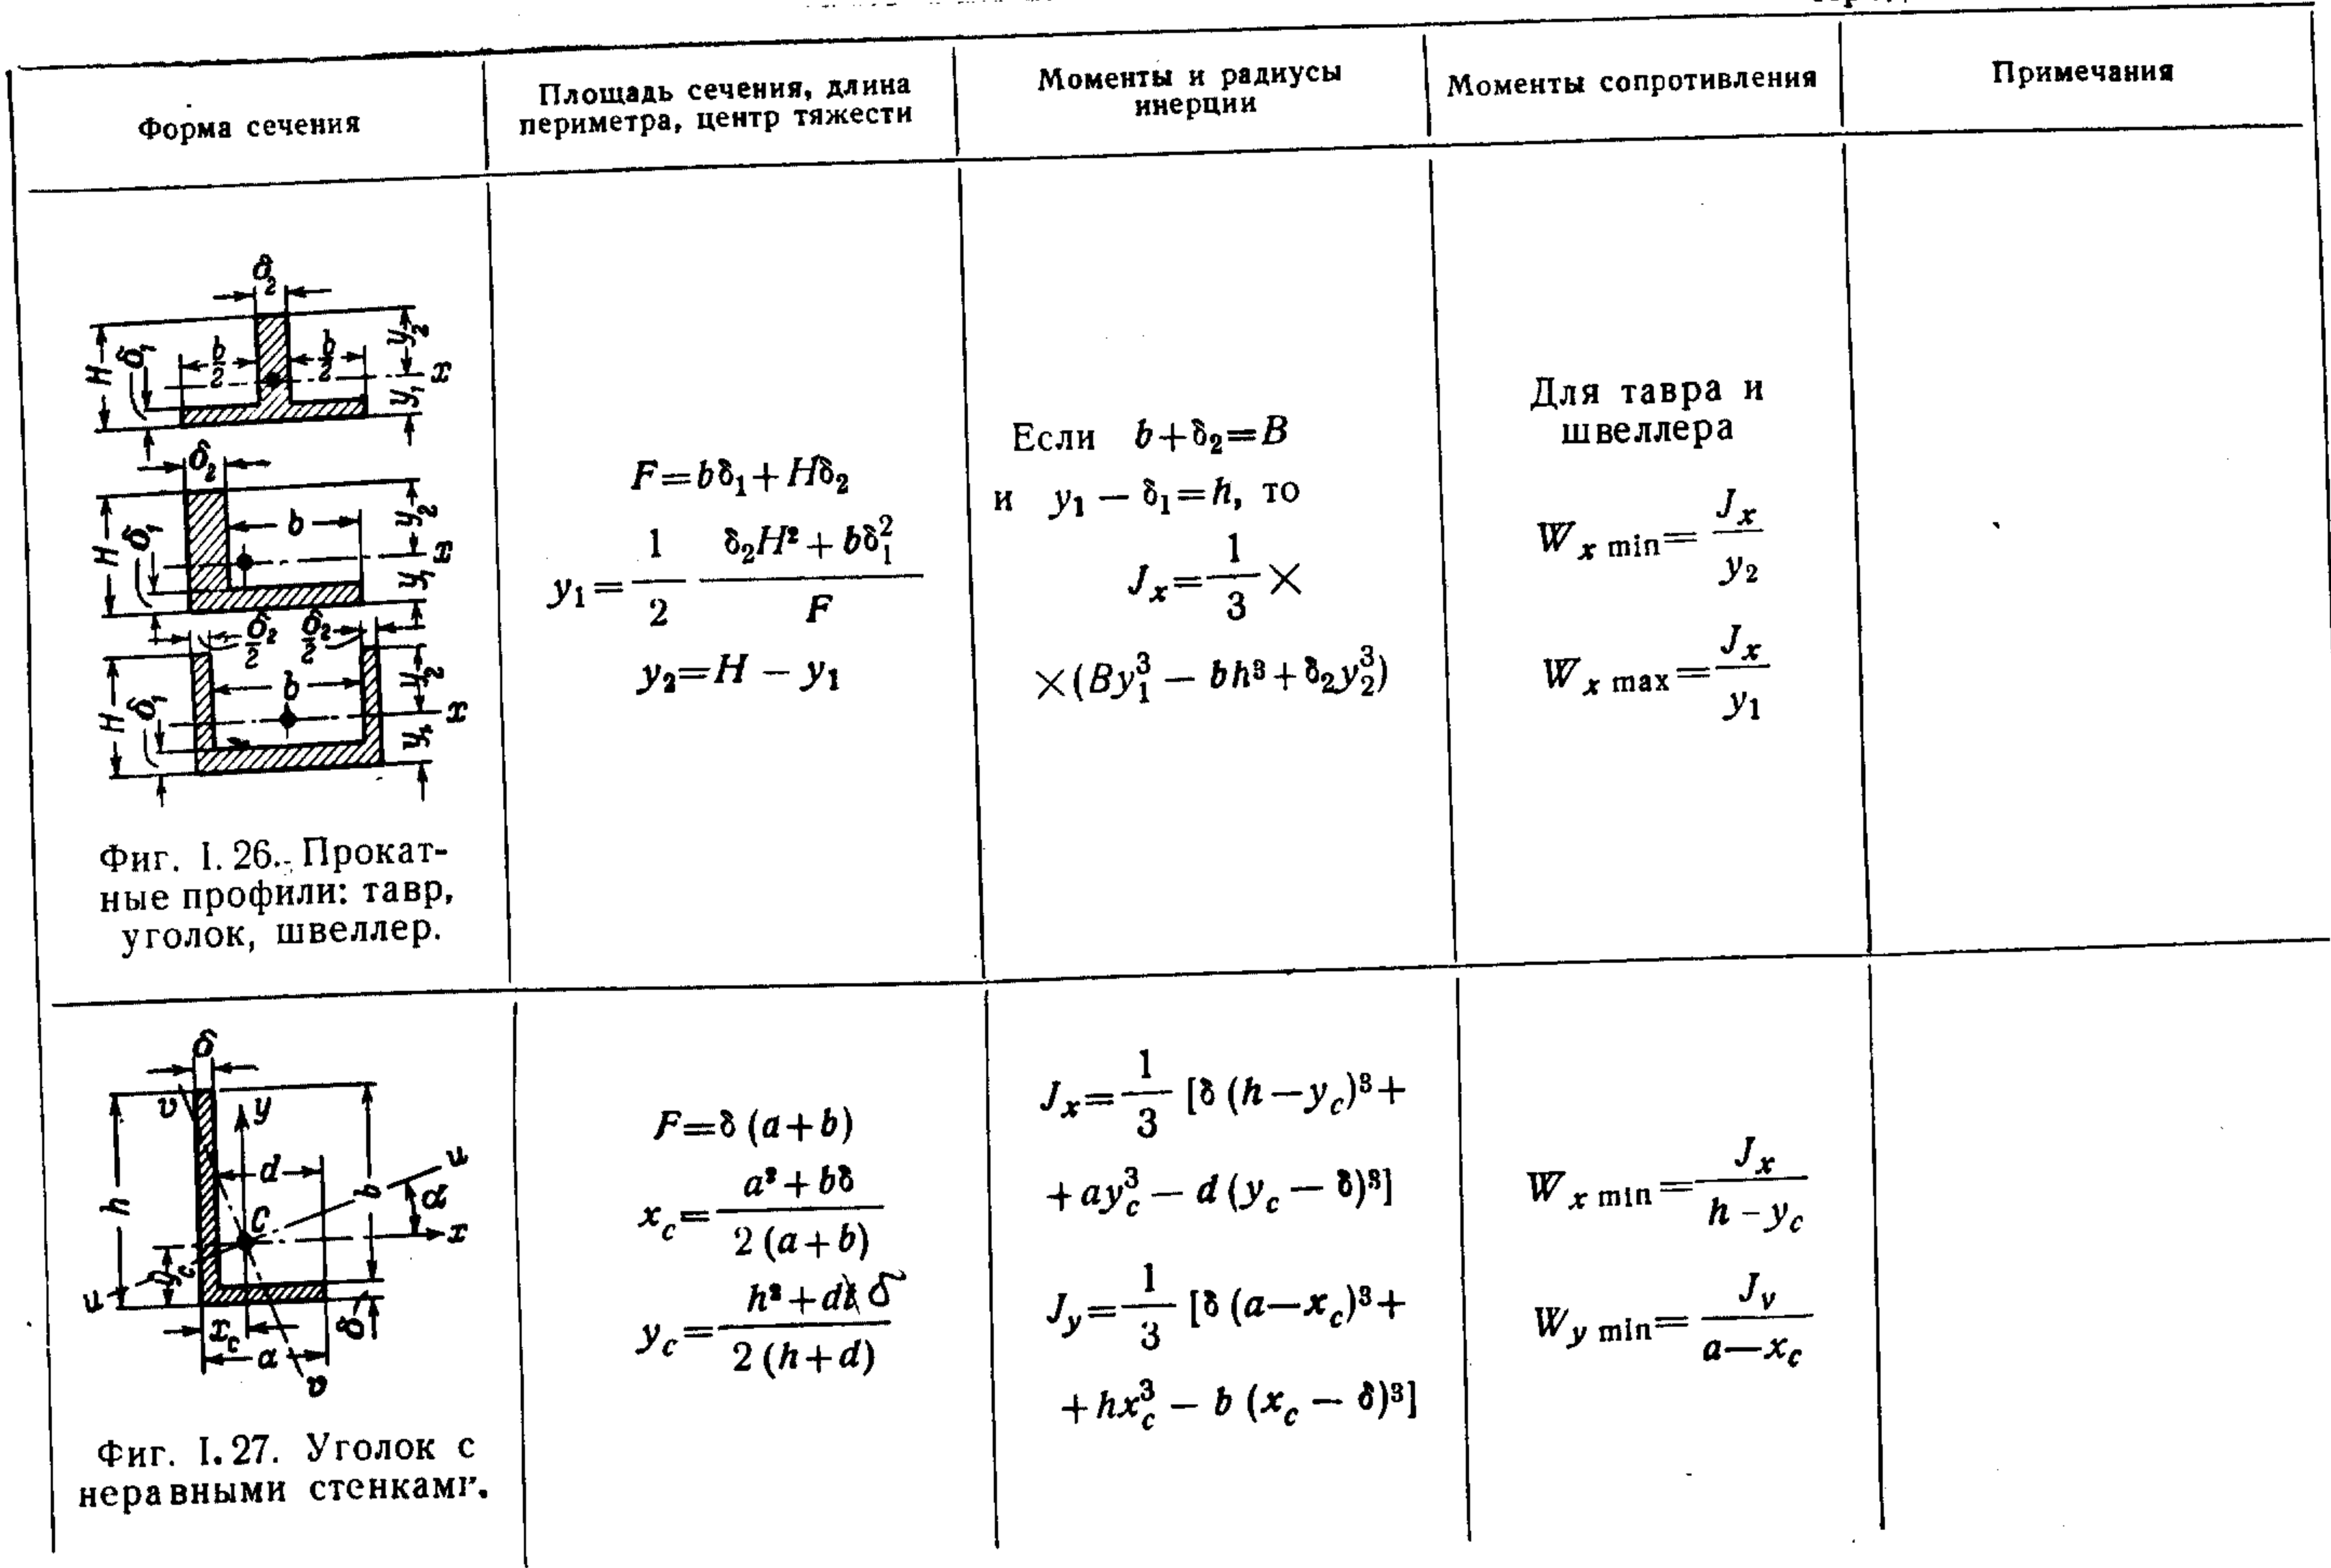 Форма сечения
Площадь сечения, длина
периметра, центр тяжести
Моменты и радиусы
инерции
Моменты сопротивления
Примечания
δ₂
H
δ₁
b/2
b/2
y₂
y₁
x
δ₂
H
δ₁
b
y₂
y₁
x
δ₂/2
δ₂/2
H
δ₁
b
y₂
y₁
x
Фиг. I.26. Прокат-
ные профили: тавр,
уголок, швеллер.
F=bδ₁+Hδ₂
y₁= 1/2 (δ₂H²+bδ₁²)/F
y₂=H – y₁
Если b+δ₂=B
и y₁ – δ₁=h, то
Jₓ= 1/3 ×
×(By₁³ – bh³+δ₂y₂³)
Для тавра и
швеллера
W x min= Jₓ/y₂
W x max= Jₓ/y₁
δ
υ
y
h
d
b
u
α
C
x
y_c
u
x_c
a
δ
υ
Фиг. I.27. Уголок с
неравными стенками.
F=δ (a+b)
x_c= (a²+bδ)/(2 (a+b))
y_c= (h²+d δ)/(2 (h+d))
Jₓ= 1/3 [δ (h–y_c)³+
+ay_c³ – d (y_c – δ)³]
J_y= 1/3 [δ (a–x_c)³+
+hx_c³ – b (x_c – δ)³]
W x min= Jₓ/(h - y_c)
W y min= J_v/(a–x_c)